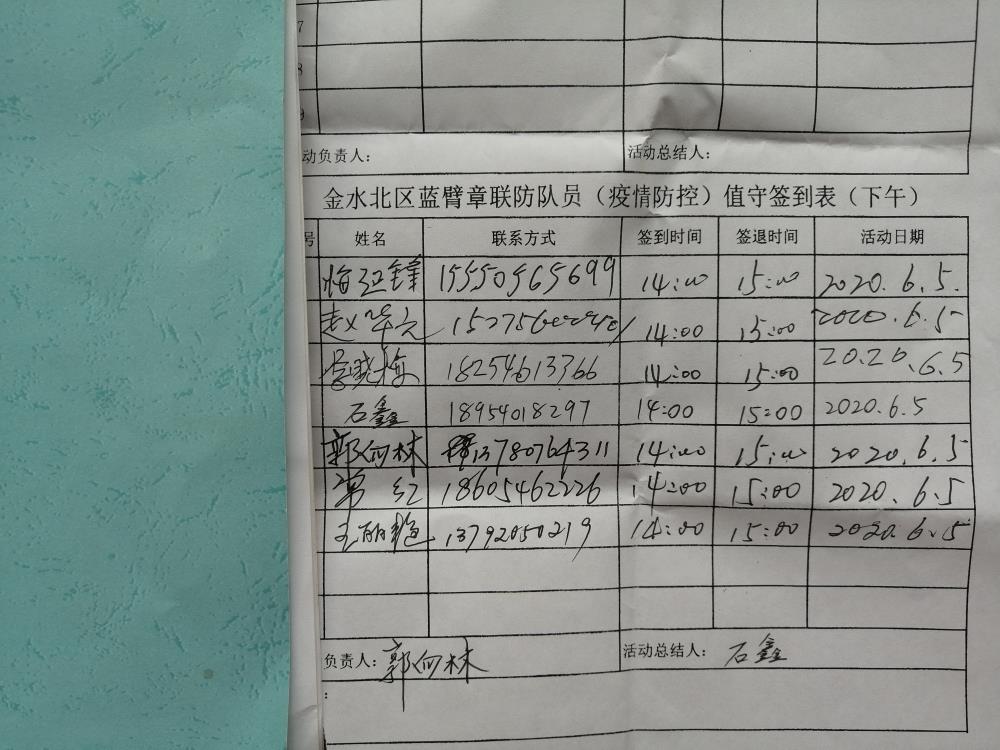 7
8
9
动负责人: 活动总结人:
金水北区蓝臂章联防队员（疫情防控）值守签到表（下午）
号 姓名 联系方式 签到时间 签退时间 活动日期
15550565699 14:00 15:00 2020.6.5.
赵 14:00 15:00 2020.6.5
李晓梅 18254613766 14:00 15:00 2020.6.5
石鑫 18954018297 14:00 15:00 2020.6.5
郭向林 13780764311 14:00 15:00 2020.6.5
常红 18605462226 14:00 15:00 2020.6.5
王丽艳 13792050219 14:00 15:00 2020.6.5
负责人: 郭向林 活动总结人: 石鑫
: